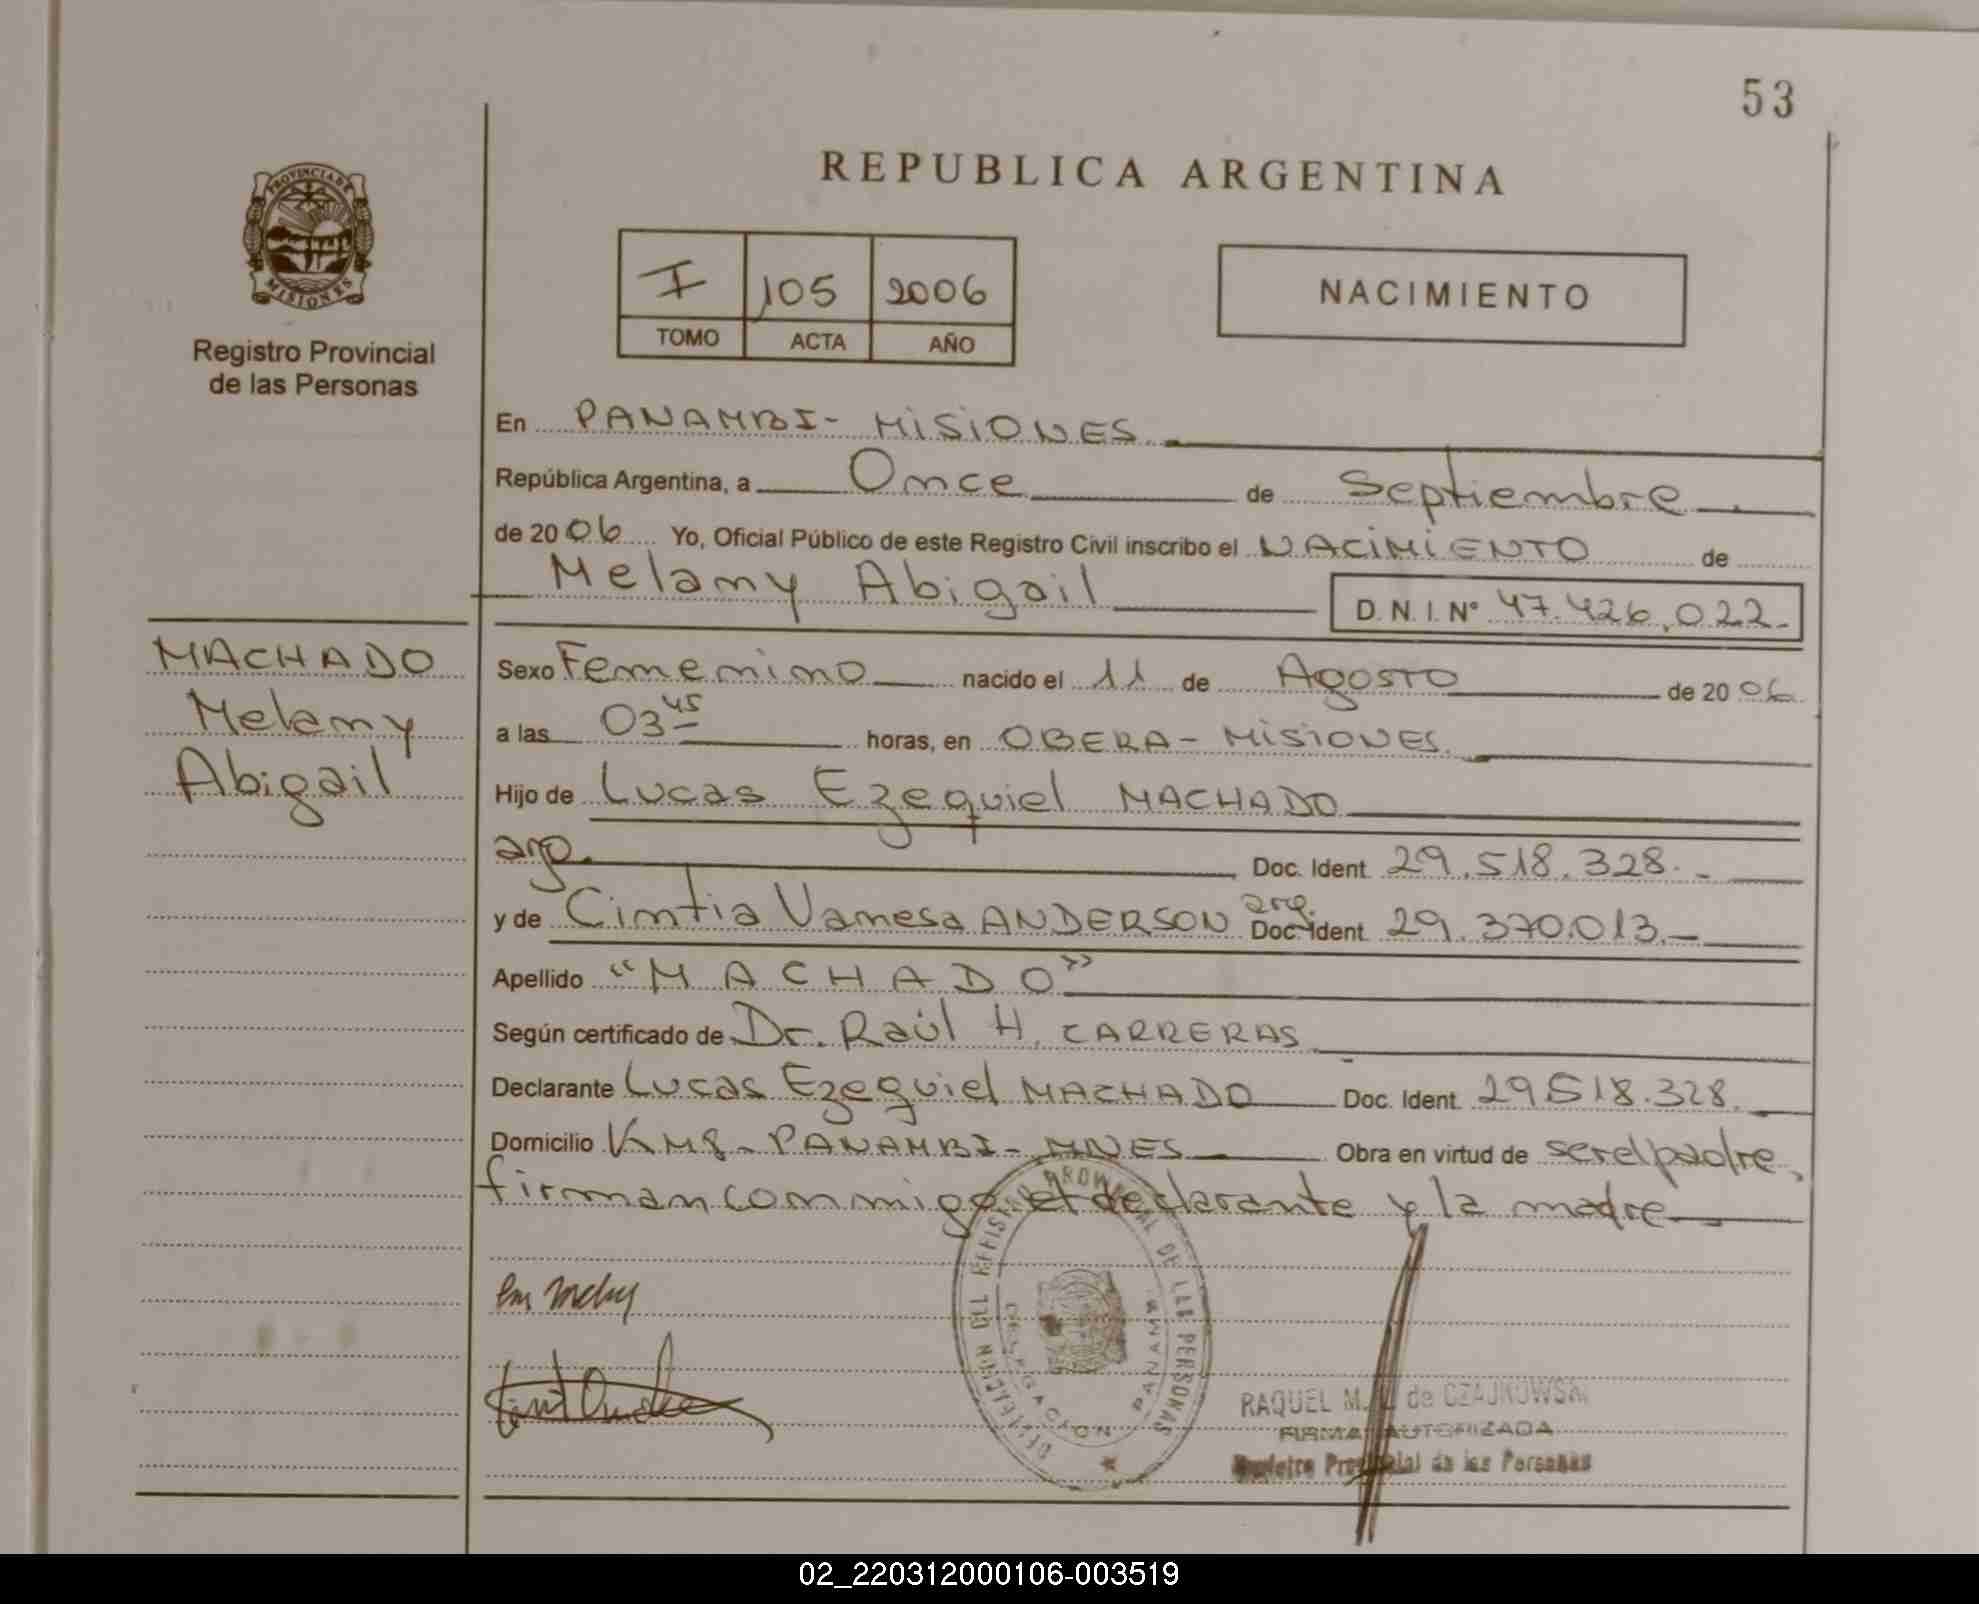 53
REPUBLICA ARGENTINA
PROVINCIA DE
MISIONES
Registro Provincial
de las Personas
I 105 2006
TOMO ACTA AÑO
NACIMIENTO
En PANAMBI - MISIONES
República Argentina, a Once de Septiembre
de 2006 Yo, Oficial Público de este Registro Civil inscribo el NACIMIENTO de
Melany Abigail D.N.I. N° 47.426.022.-
MACHADO
Melany
Abigail
Sexo Femenino nacido el 11 de Agosto de 2006
a las 03 45 horas, en OBERA - MISIONES
Hijo de Lucas Ezequiel MACHADO
arg. Doc. Ident. 29.518.328.-
y de Cintia Vanesa ANDERSON arg. Doc. Ident. 29.370.013.-
Apellido "MACHADO"
Según certificado de Dr. Raúl H. CARRERAS
Declarante Lucas Ezequiel MACHADO Doc. Ident. 29518.328.
Domicilio KM8 - PANAMBI - MNES Obra en virtud de ser el padre,
firman conmigo el declarante y la madre
DEL REGISTRO PROVINCIAL DE LAS PERSONAS
DELEGACION PANAMBI
RAQUEL M. de CZAJKOWSKI
FIRMA AUTORIZADA
Registro Provincial de las Personas
02_220312000106-003519